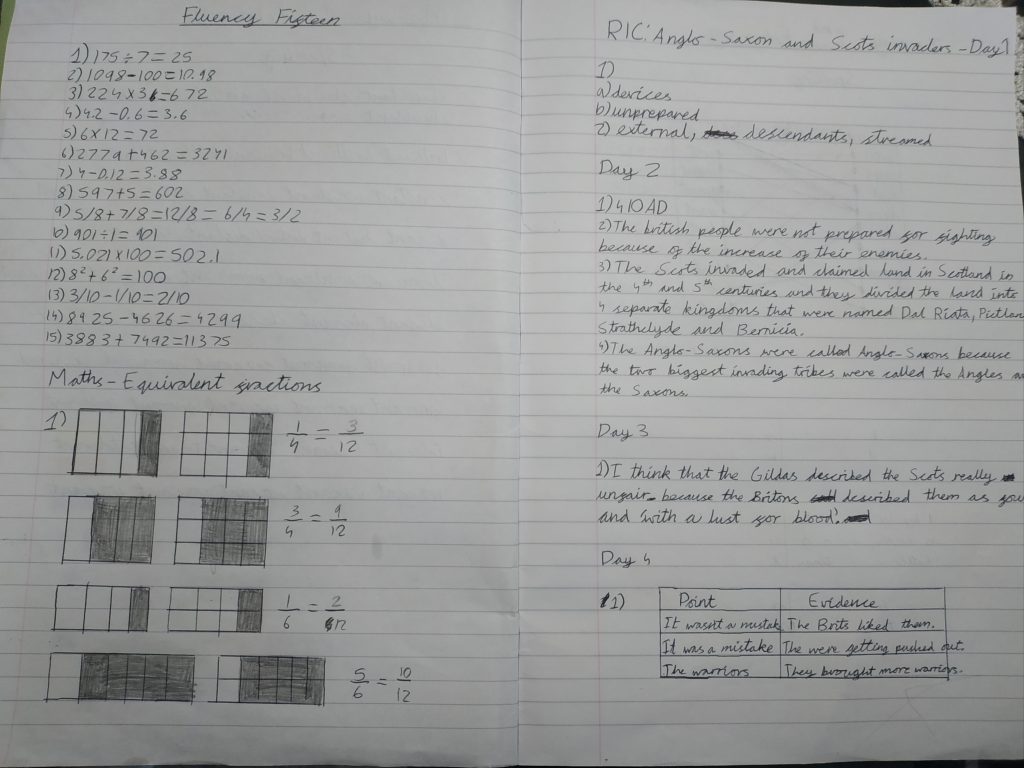 Fluency Fifteen
1) 175 ÷ 7 = 25
2) 1098 - 100 = 10.98
3) 224 x 3 = 672
4) 4.2 - 0.6 = 3.6
5) 6 x 12 = 72
6) 2779 + 462 = 3241
7) 4 - 0.12 = 3.88
8) 597 + 5 = 602
9) 5/8 + 7/8 = 12/8 = 6/4 = 3/2
10) 901 ÷ 1 = 901
11) 5.021 x 100 = 502.1
12) 8² + 6² = 100
13) 3/10 - 1/10 = 2/10
14) 8925 - 4626 = 4299
15) 3883 + 7492 = 11375
Maths - Equivalent fractions
1) 1/4 = 3/12
3/4 = 9/12
1/6 = 2/12
5/6 = 10/12
RIC: Anglo-Saxon and Scots invaders - Day 1
1)
a) devices
b) unprepared
2) external, descendants, streamed
Day 2
1) 410AD
2) The british people were not prepared for fighting
because of the increase of their enemies.
3) The Scots invaded and claimed land in Scotland in
the 4th and 5th centuries and they divided the land into
4 separate kingdoms that were named Dal Riata,
Strathclyde and Bernicia.
4) The Anglo-Saxons were called Anglo-Saxons because
the two biggest invading tribes were called the Angles
the Saxons.
Day 3
1) I think that the Gildas described the Scots really
unfair because the Britons described them as
and 'with a lust for blood'.
Day 4
1) Point Evidence
It wasnt a mistak The Brits liked them.
It was a mistake The were getting pushed out.
The warriors They brought more warriors.